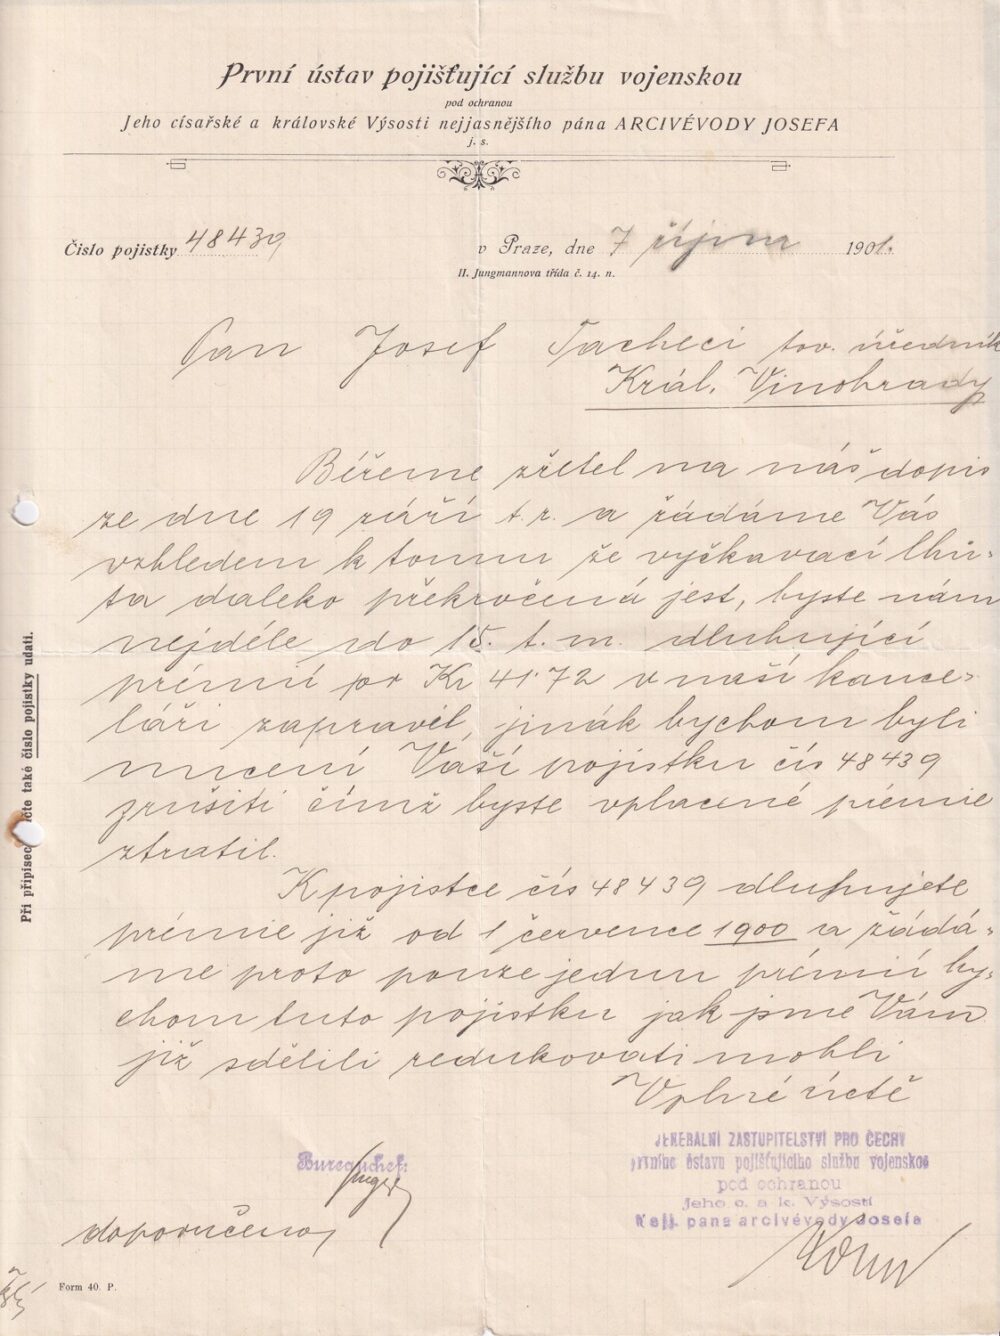 První ústav pojišťující službu vojenskou
pod ochranou
Jeho císařské a královské Výsosti nejjasnějšího pána ARCIVÉVODY JOSEFA
j. s.
Číslo pojistky 48439
v Praze, dne 7 října 1901.
II. Jungmannova třída č. 14. n.
Pan Josef Tacheci tov. úředník
Král. Vinohrady
Béřeme zřetel na náš dopis
ze dne 19 září t. r. a žádáme Vás
vzhledem k tomu že vyčkavací lhů-
ta daleko překročená jest, byste nám
nejdéle do 15. t. m. dluhující
prémii po Kr 41·72 v naší kance-
láři zapravil, jinák bychom byli
nuceni Vaší pojistku čís 48439
zrušiti čímž byste vplacené prémie
ztratil.
K pojistce čís 48439 dluhujete
prémie již od 1 července 1900 a žádá-
me proto pouze jednu prémii by-
chom tuto pojistku jak jsme Vám
již sdělili redukovati mohli
V plné úctě
JENERÁLNÍ ZASTUPITELSTVÍ PRO ČECHY
prvního ústavu pojišťujícího službu vojenskou
pod ochranou
Jeho c. a k. Výsosti
Nejj. pana arcivévody Josefa
Bureauchef:
doporučeno
Form 40. P.
Při přípisech račte také číslo pojistky udati.